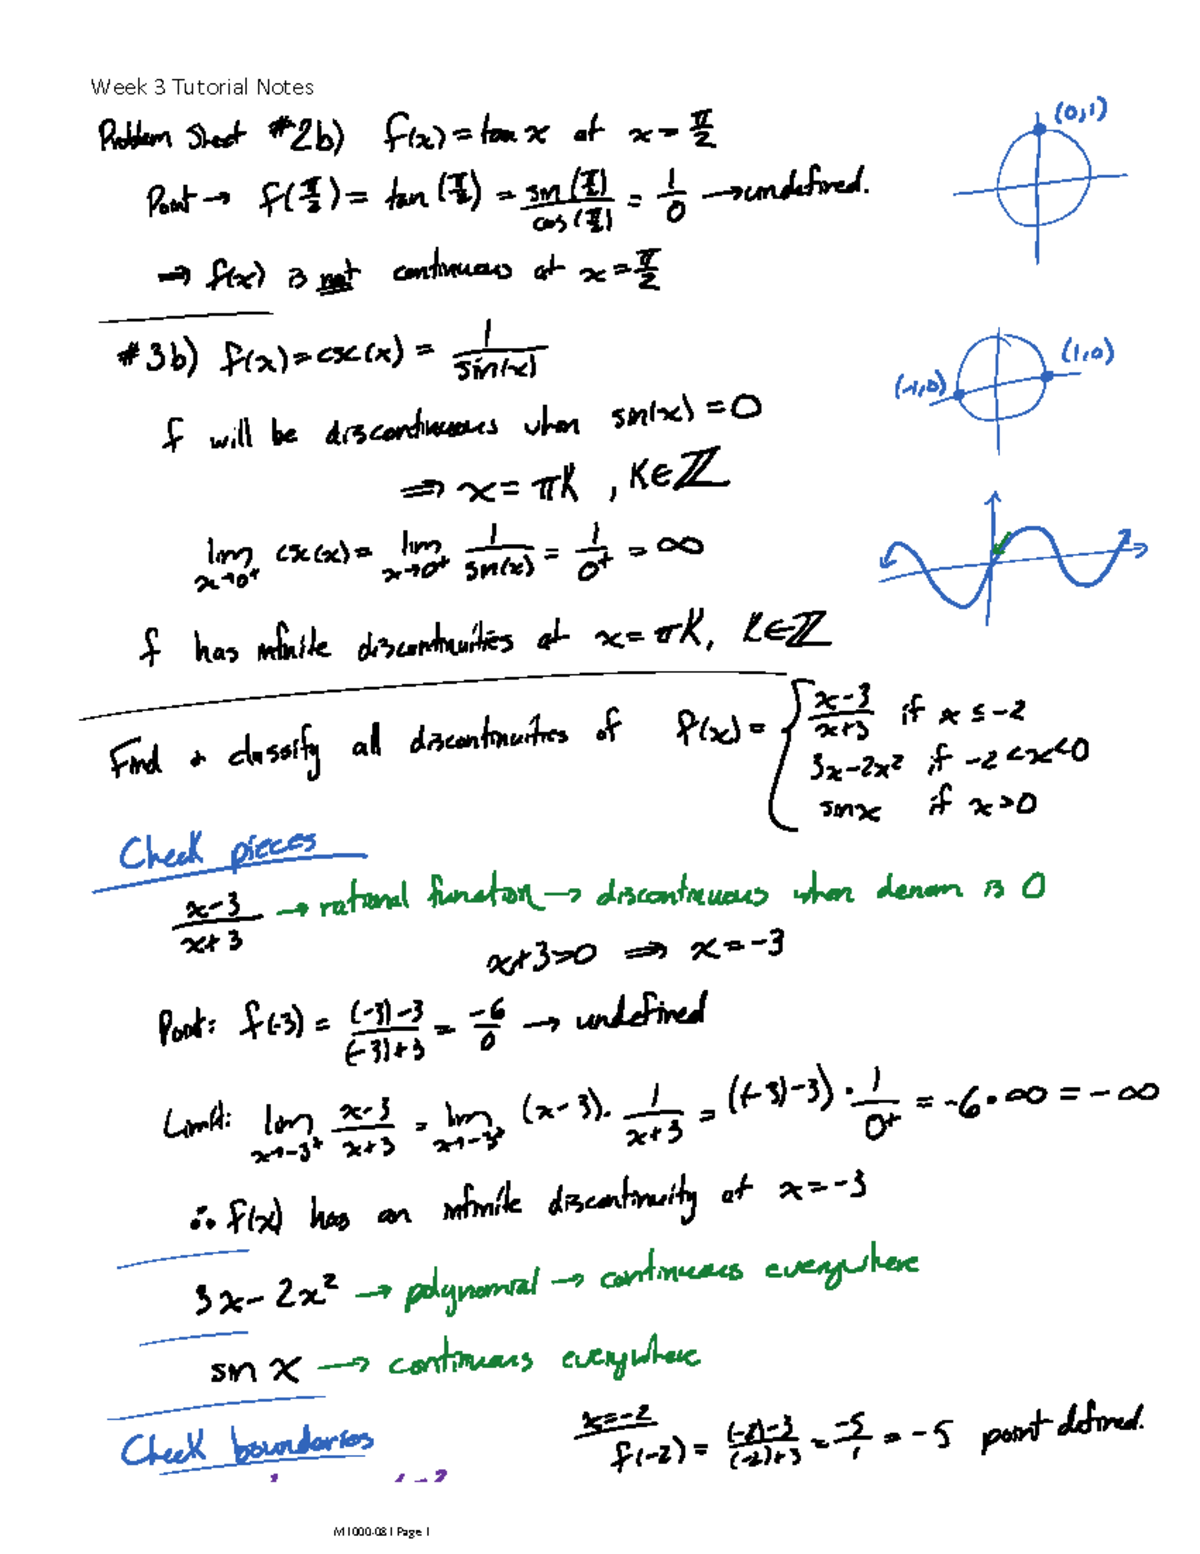 Week 3 Tutorial Notes
Problem Sheet #2b) f(x) = tan x at x = π/2
(0,1)
Point → f(π/2) = tan(π/2) = sin(π/2)/cos(π/2) = 1/0 → undefined.
⇒ f(x) is not continuous at x = π/2
#3b) f(x) = csc(x) = 1/sin(x)
(-1,0) (1,0)
f will be discontinuous when sin(x) = 0
⇒ x = πK , K∈ℤ
lim x→0⁺ csc(x) = lim x→0⁺ 1/sin(x) = 1/0⁺ = ∞
f has infinite discontinuities at x = πK, K∈ℤ
Find & classify all discontinuities of f(x) = { (x-3)/(x+3) if x ≤ -2
3x-2x² if -2 < x < 0
sin x if x > 0
Check pieces
(x-3)/(x+3) → rational function → discontinuous when denom is 0
x+3=0 ⇒ x = -3
Point: f(-3) = ((-3)-3)/((-3)+3) = -6/0 → undefined
Limit: lim x→-3⁺ (x-3)/(x+3) = lim x→-3⁺ (x-3)· 1/(x+3) = ((-3)-3) · 1/0⁺ = -6·∞ = -∞
∴ f(x) has an infinite discontinuity at x = -3
3x - 2x² → polynomial → continuous everywhere
sin x → continuous everywhere
Check boundaries
x = -2
f(-2) = ((-2)-3)/((-2)+3) = -5/1 = -5 point defined.
M1000-081 Page 1